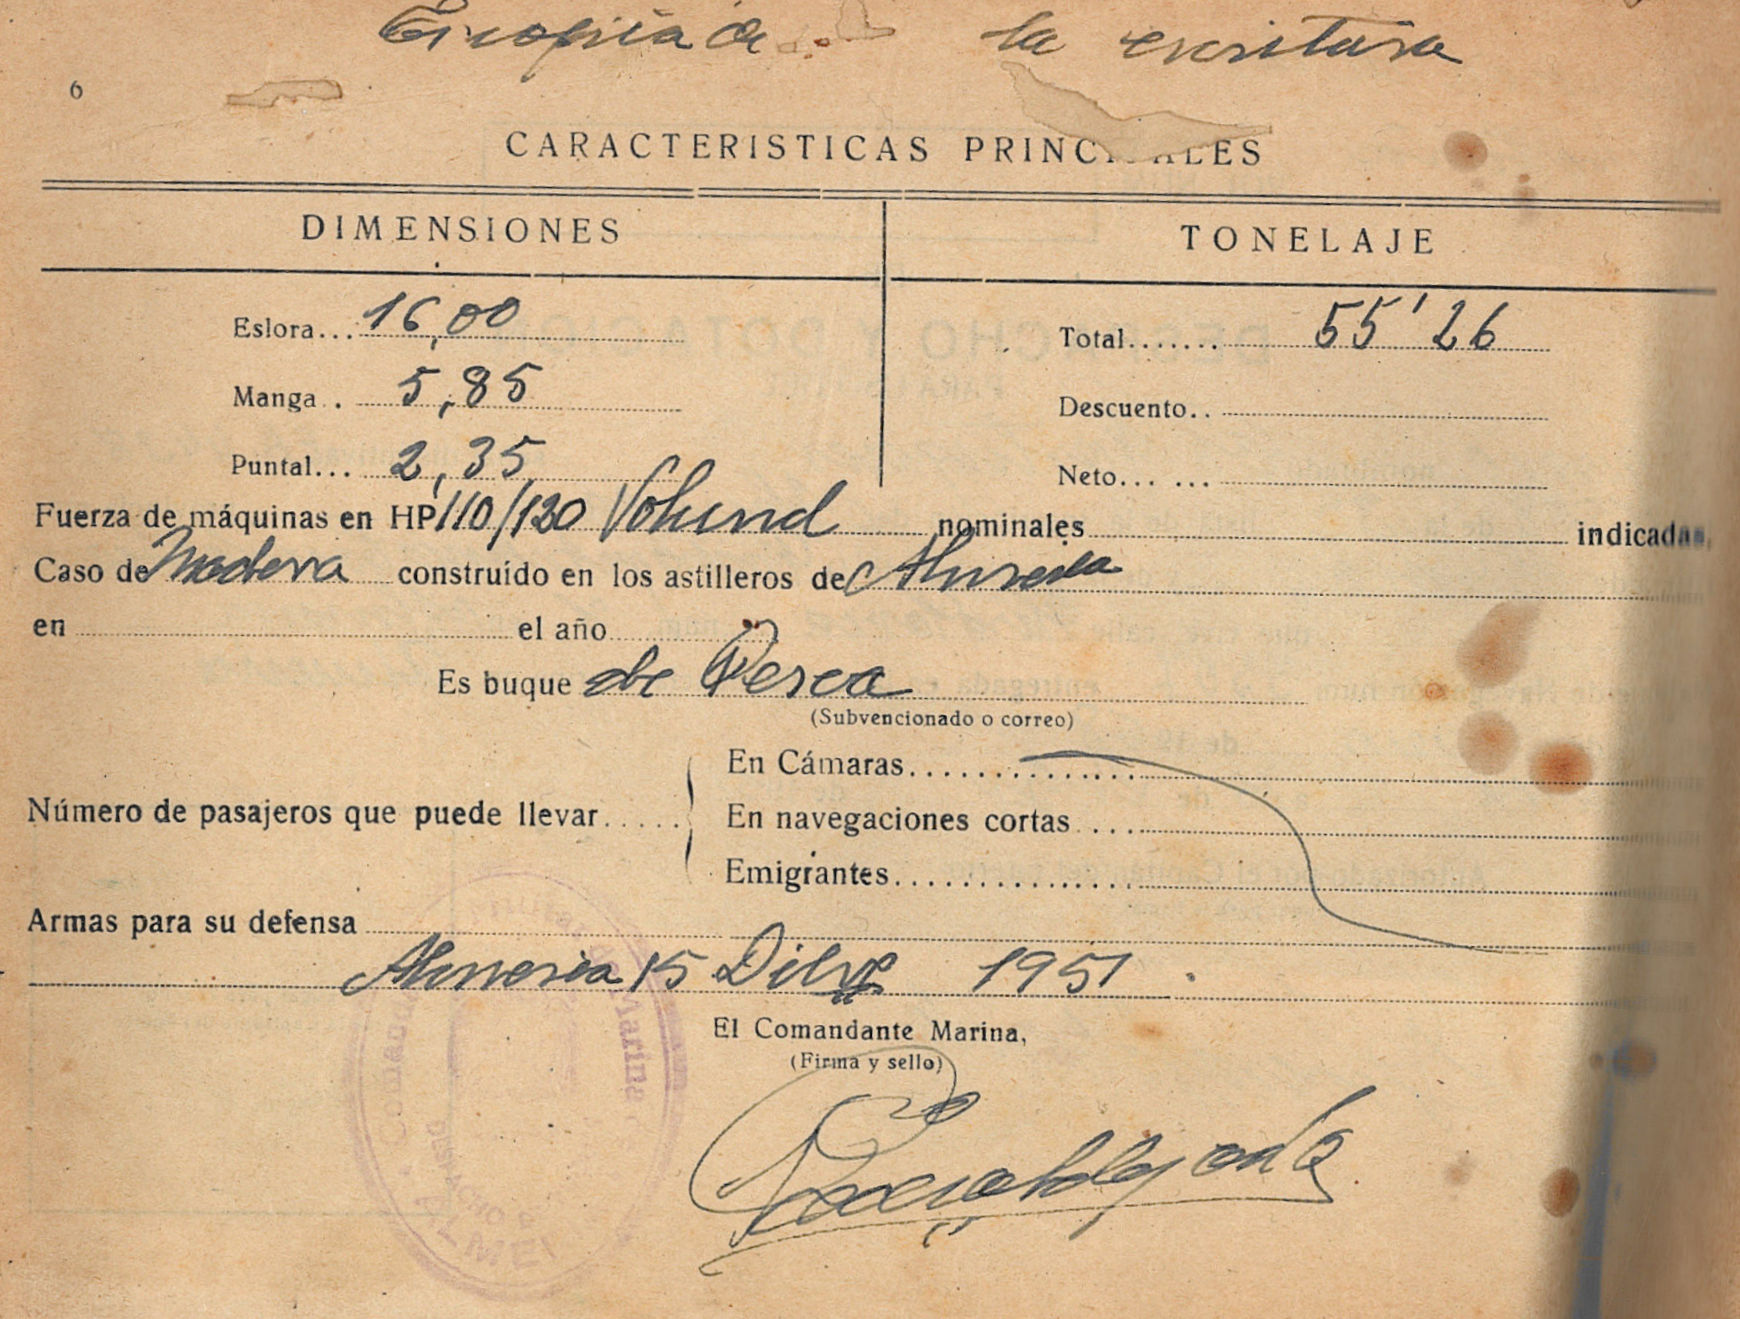 la escritura
6
CARACTERISTICAS PRINCIPALES
DIMENSIONES
TONELAJE
Eslora... 16,00
Total....... 55'26
Manga.. 5,85
Descuento..
Puntal... 2,35
Neto... ...
Fuerza de máquinas en HP 110/130 Volund nominales indicadas
Caso de Madera construído en los astilleros de Almeria
en el año
Es buque de Pesca
(Subvencionado o correo)
En Cámaras
Número de pasajeros que puede llevar.....
En navegaciones cortas
Emigrantes
Armas para su defensa
Almeria 15 Dibre 1951.
El Comandante Marina,
(Firma y sello)